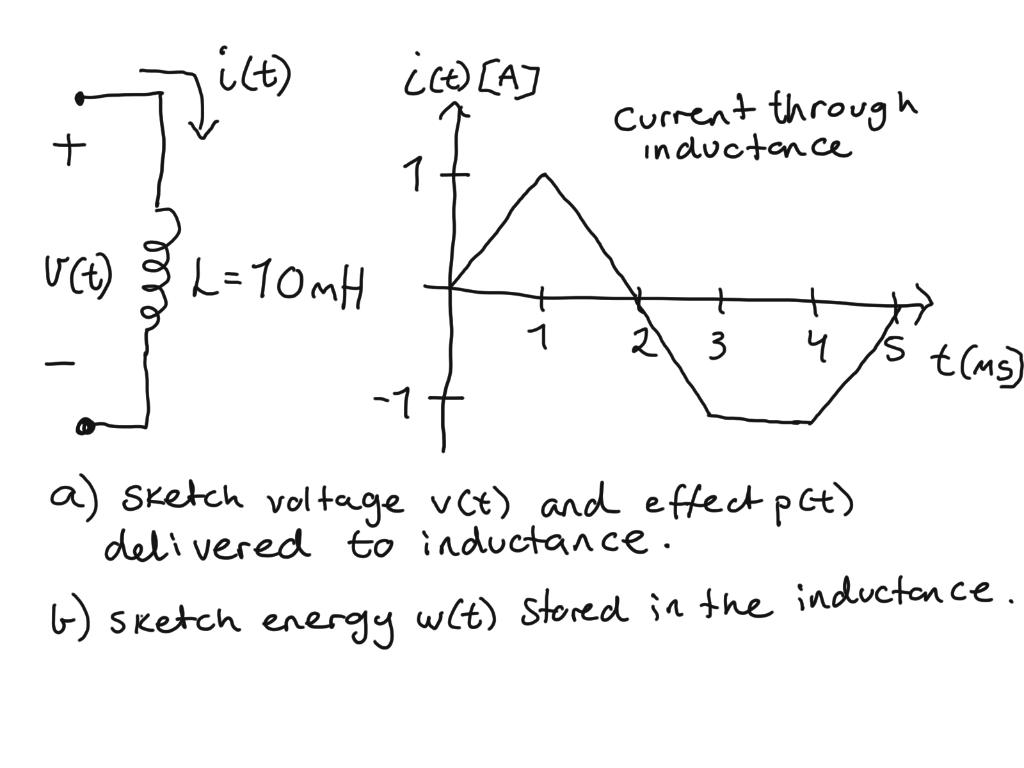 i(t)
+
v(t)
L=10mH
−
i(t) [A]
current through
inductance
1
-1
1 2 3 4 5
t(ms)
a) sketch voltage v(t) and effect p(t)
delivered to inductance.
b) sketch energy w(t) stored in the inductance.